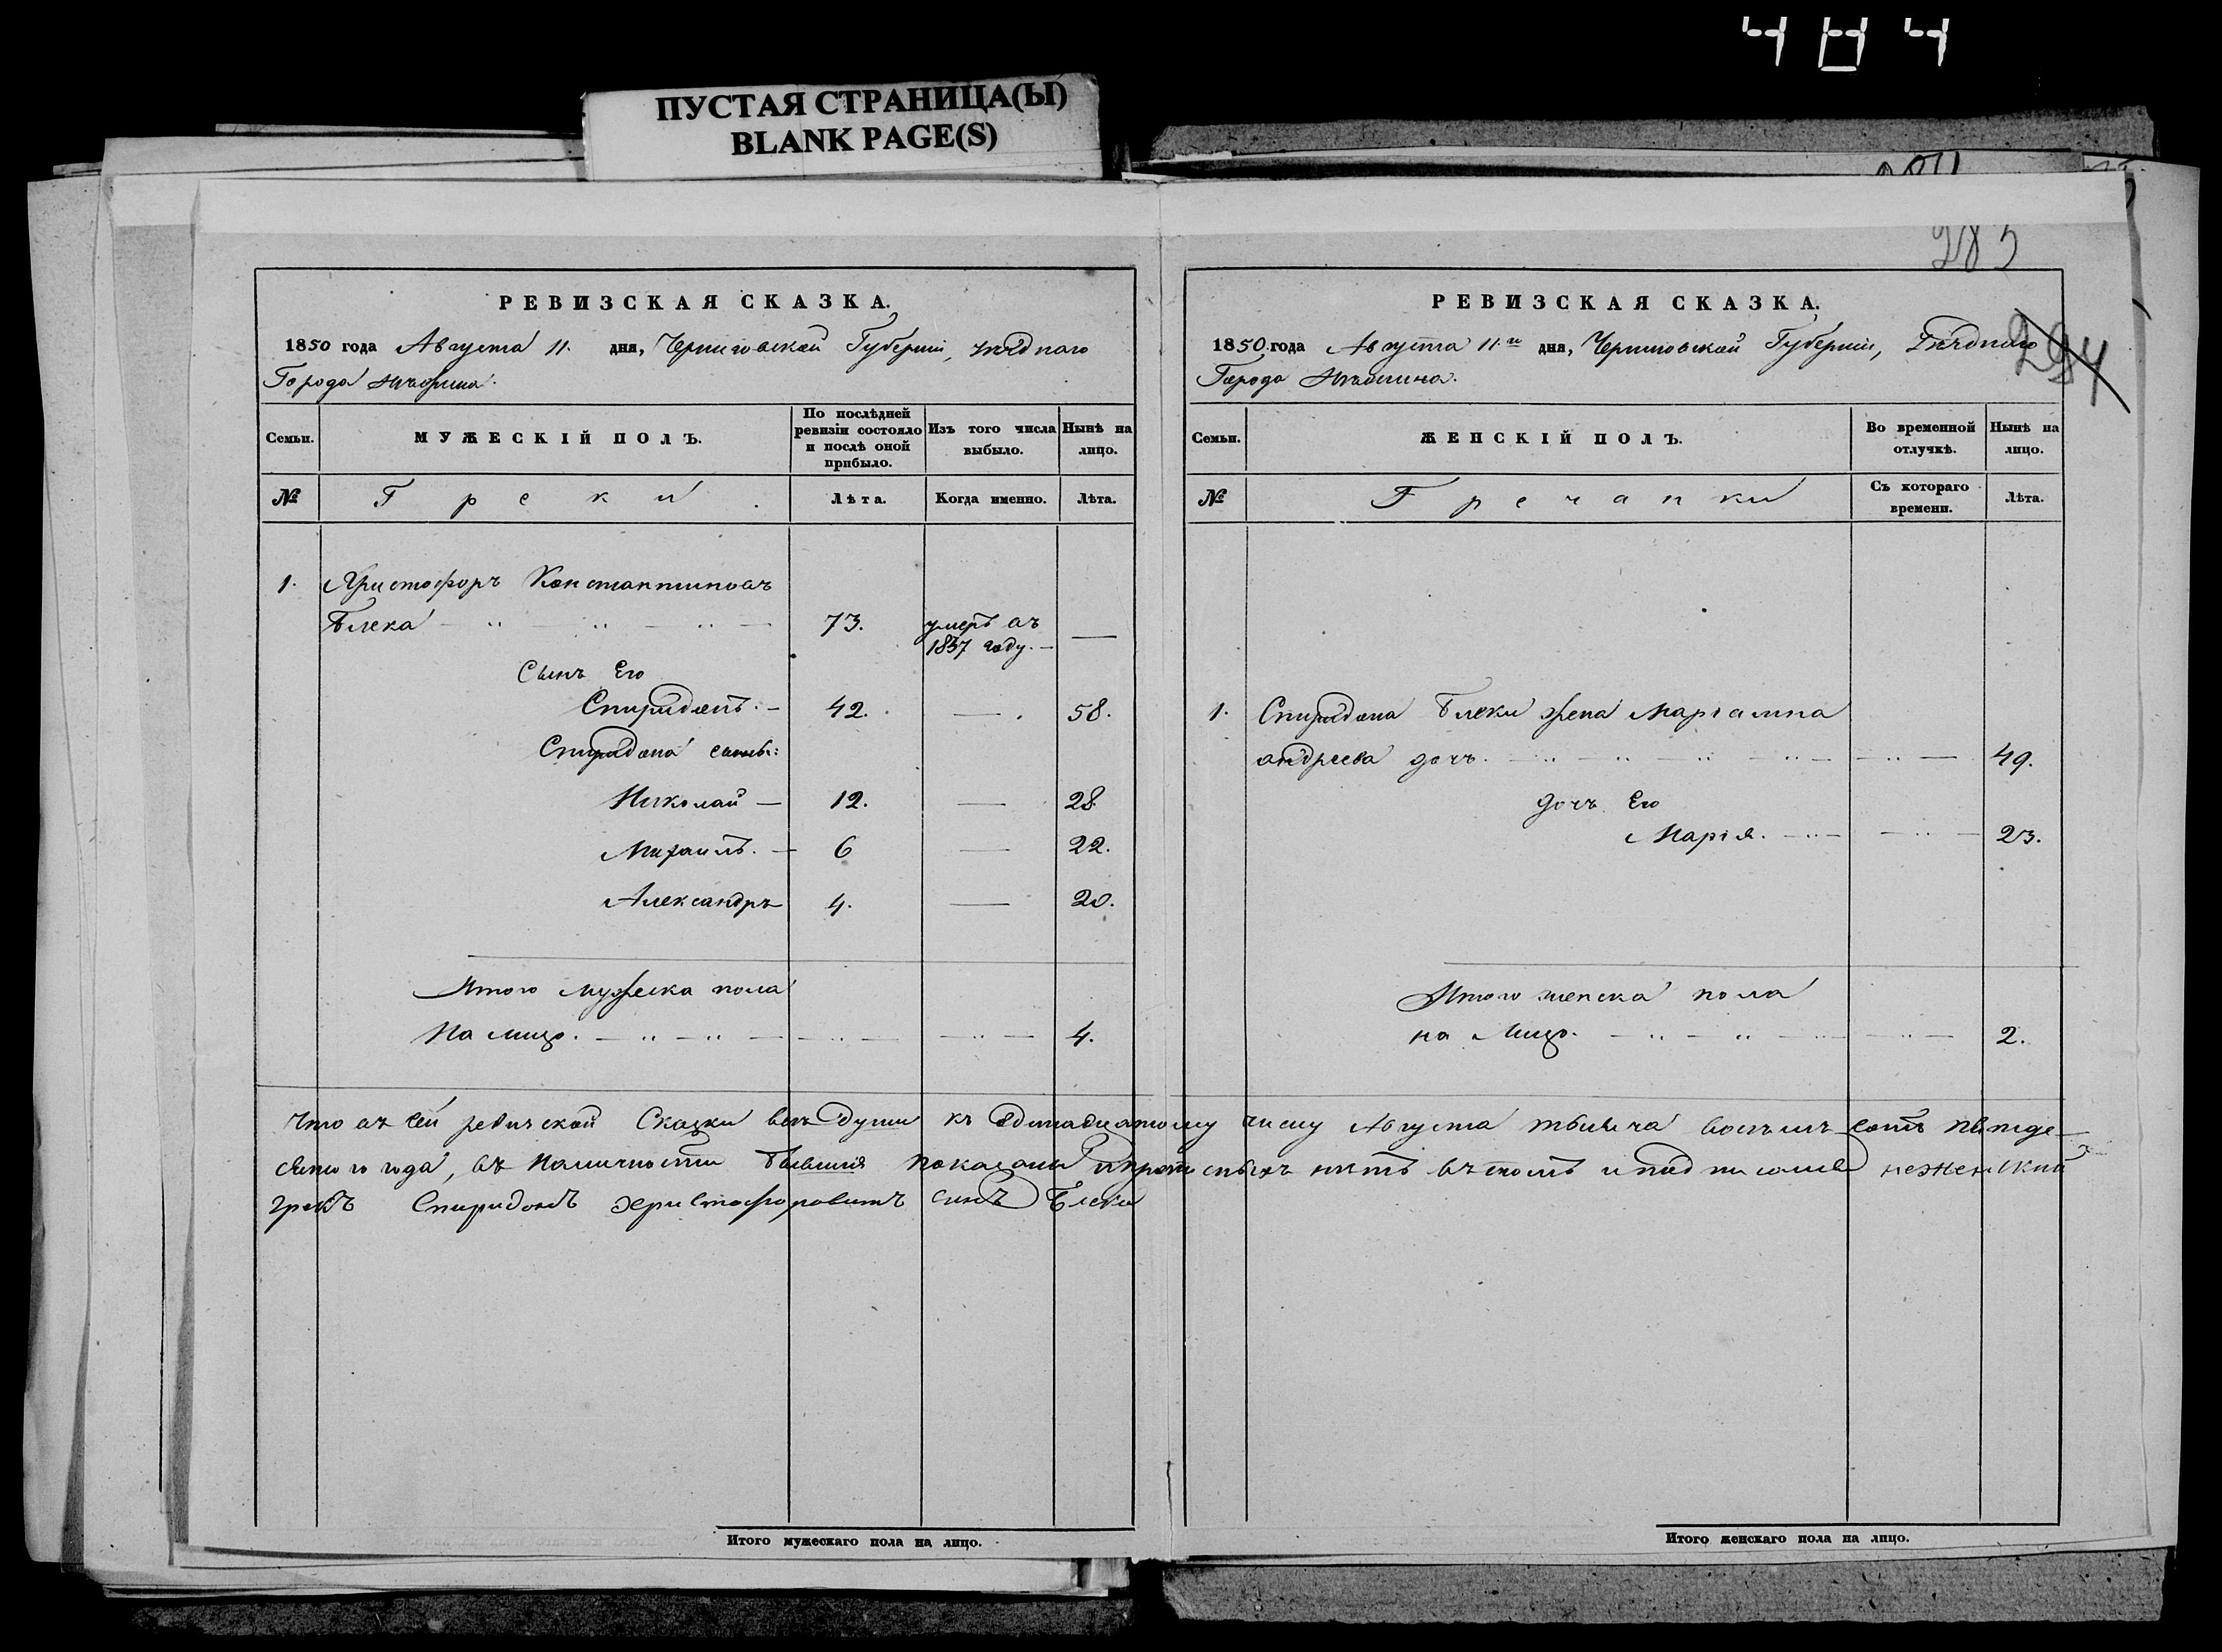 484
ПУСТАЯ СТРАНИЦА(Ы)
BLANK PAGE(S)
РЕВИЗСКАЯ СКАЗКА.
1850 года Августа 11. дня, Черниговской Губерніи, уѣзднаго
Города Нѣжина.
Семьи. МУЖЕСКІЙ ПОЛЪ. По послѣдней ревизіи состояло и послѣ оной прибыло. Изъ того числа выбыло. Нынѣ на лицо.
№ Греки. Лѣта. Когда именно. Лѣта.
1. Христофоръ Константиновъ
Блека 73. умеръ въ 1837 году. —
Сынъ Его
Спиридонъ. — 42. — 58.
Спиридона сыны:
Николай — 12. — 28.
Михаилъ. — 6 — 22.
Александръ 4. — 20.
Итого мужеска пола
на лицо. 4.
РЕВИЗСКАЯ СКАЗКА.
1850 года Августа 11.го дня, Черниговской Губерніи, Уѣзднаго
Города Нѣжина.
294
Семьи. ЖЕНСКІЙ ПОЛЪ. Во временной отлучкѣ. Нынѣ на лицо.
№ Гречанки Съ котораго времени. Лѣта.
1. Спиридона Блеки жена Маріамна
андреева дочь. 49.
дочь Его
Марія. 23.
Итого женска пола
на Лицо. 2.
Что въ сей ревизской Сказки всѣ души къ одинадцатому числу Августа тысяча восемъ сотъ пятиде-
сятого года, въ наличности бывшия показаны и прописныхъ нѣтъ въ томъ и подписался неженский
грекъ Спиридонъ христофоровичъ синъ Блека
Итого мужескаго пола на лицо.
Итого женскаго пола на лицо.